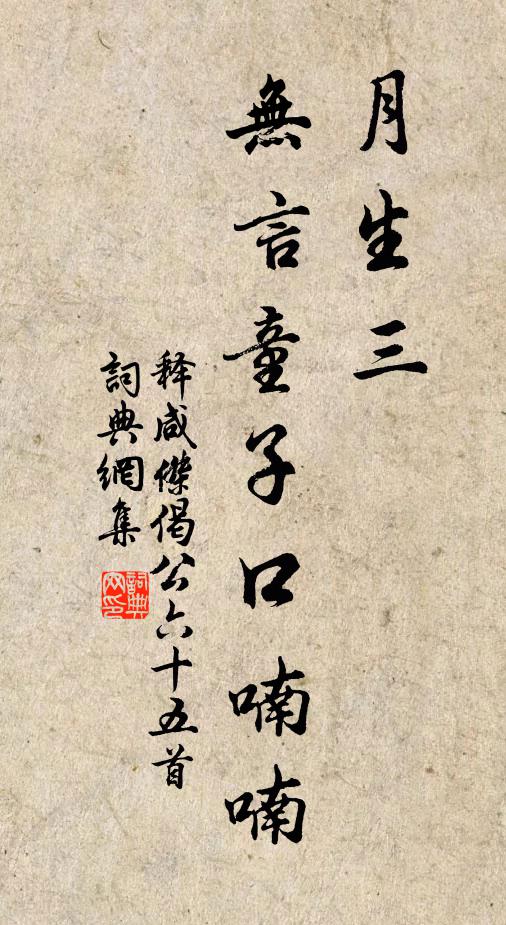 月生三
無言童子口喃喃
释咸傑偈公六十五首
詞典網集
詞典网印